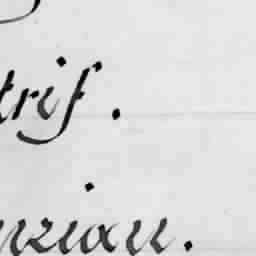 trif.
nzian.